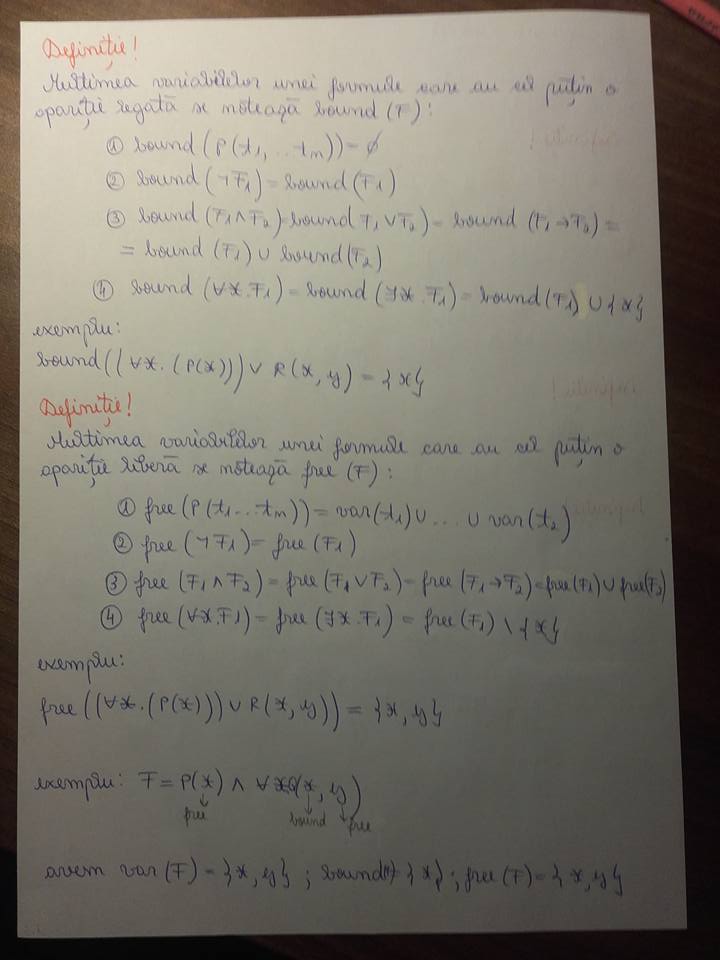 Definiție!
Mulțimea variabilelor unei formule care au cel puțin o
apariție legată se notează bound (F):
① bound (P(t1, ... tn)) = ∅
② bound (¬F1) = bound (F1)
③ bound (F1 ∧ F2) = bound F1 ∨ F2) = bound (F1 → F2) =
= bound (F1) ∪ bound (F2)
④ bound (∀x. F1) = bound (∃x. F1) = bound (F1) ∪ {x}
exemplu:
bound ((∀x. (P(x))) ∨ R(x, y) = {x}
Definiție!
Mulțimea variabilelor unei formule care au cel puțin o
apariție liberă se notează free (F):
① free (P(t1 ... tn)) = var(t1) ∪ ... ∪ var(t2)
② free (¬F1) = free (F1)
③ free (F1 ∧ F2) = free (F1 ∨ F2) = free (F1 → F2) = free(F1) ∪ free(F2)
④ free (∀x.F1) = free (∃x.F1) = free (F1) \ {x}
exemplu:
free ((∀x. (P(x))) ∨ R(x, y)) = {x, y}
exemplu: F = P(x) ∧ ∀xQ(x, y)
free bound free
avem var (F) = {x, y}; bound(F) = {x}; free (F) = {x, y}